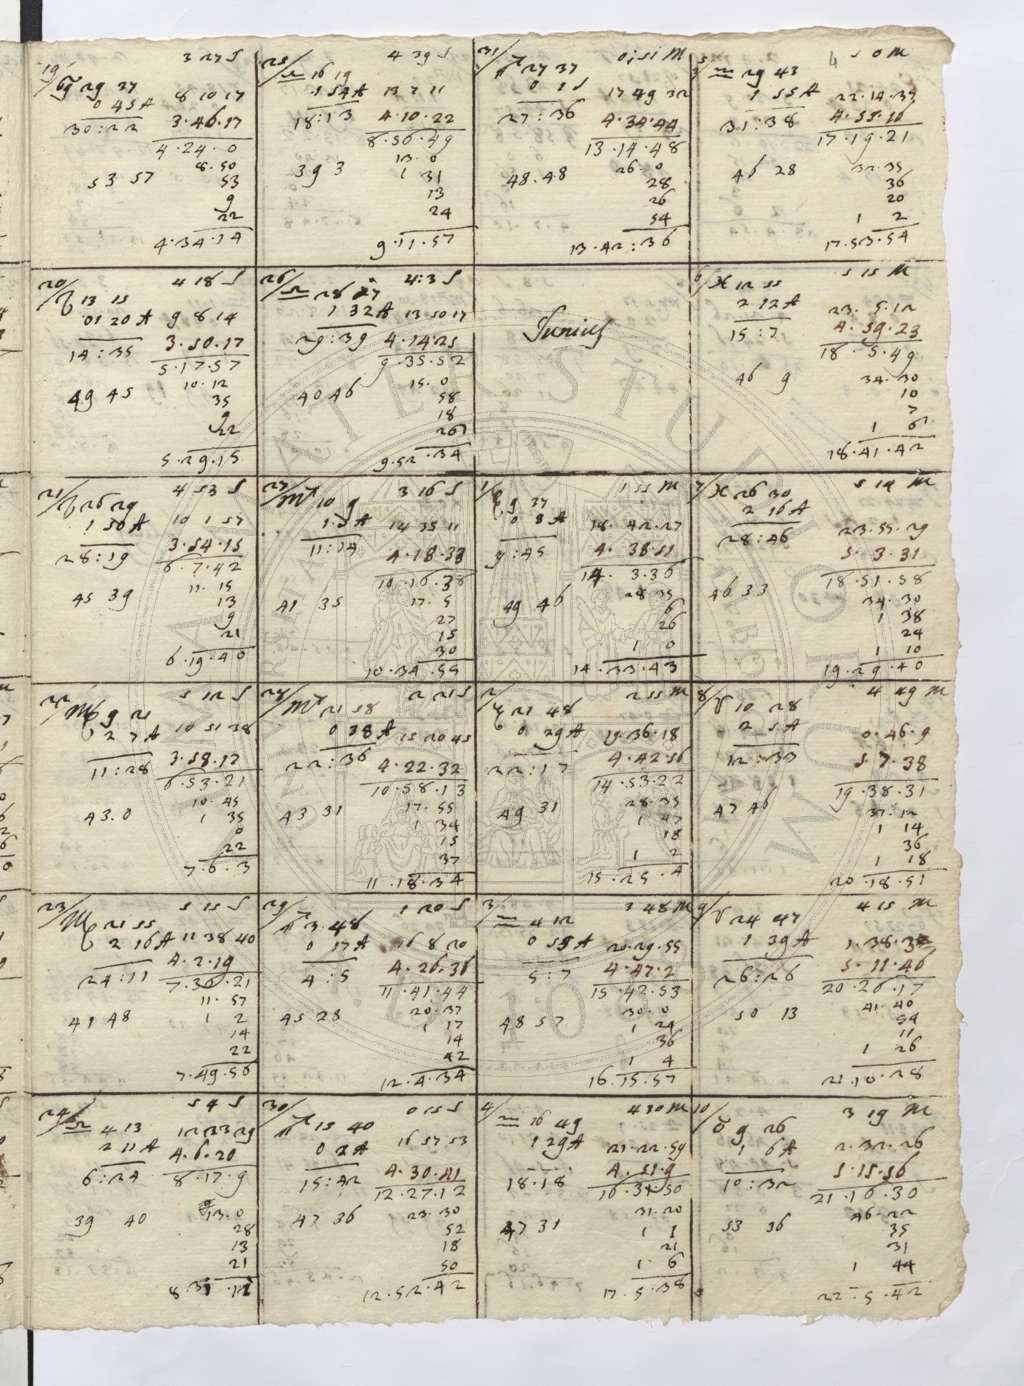 19 3 27 S
♋ 29 37
0 45 A 8 10 17
30:22 3.46.17
4.24.0
8.50
53 57 53
9
22
4.34.14
25 4 39 S
♎ 16 19
1 54 A 13 7 11
18:13 4.10.22
8.56.49
13.0
39 3 1 31
13
24
9.11.57
31 0 51 M
27 37
0 1 S 17 49 32
27:36 4.34.44
13.14.48
26.0
48.48 28
26
54
13.42:36
5 5 0 M
♒ 29 43
1 55 A 22.14.39
31:38
17.19.21
46 28 32.35
36
20
1 2
17.53.54
20 4 18 S
♌ 13 15
01 20 A 9 8 14
14:35 3.50.17
5.17.57
10.12
49 45 35
9
22
5.29.15
26 4:3 S
♎ 28 7
1 32 A 13 50 17
29:39 4.14.25
9.35.52
15.0
40 46 58
18
26
9.52.34
Junius
6 5 15 M
♓ 12 55
2 12 A 23.5.12
15:7 4.59.23
18.5.49
46 9 34.30
10
7
1 6
18.41.42
21 4 53 S
♌ 26 29
1 50 A 10 1 57
28:19 3.54.15
6.7.42
11.15
45 39 13
9
21
6.19.40
27 3 16 S
♏ 10 9
1.5 A 14 35 11
11:14 4.18.38
10.16.38
17.5
41 35 27
15
30
10.34.55
1 1 55 M
♑ 9 37
0 8 A 18.42.27
9:45 4.38.51
14.3.36
28 35
49 46 6
26
1 0
14.33.43
7 5 14 M
♓ 26 30
2 16 A 23.55.29
28:46 5.3.31
18.51.58
46 33 34.30
1 38
24
1 10
19.29.40
22 5 12 S
♍ 9 21
2 7 A 10 51 38
11:28 3.58.12
6.53.21
10.45
43.0 1 35
0
22
7.6.3
28 2 21 S
♏ 21 58
0 38 A 15 20 45
22:36 4.22.32
10.58.13
17.55
43 31 1 34
15
37
11.18.34
2 2 55 M
♑ 21 48
0 29 A 19.36.18
22:17 4.42.56
14.53.22
28.35
49 31 1 47
18
1 2
15.25.4
8 4 49 M
♈ 10 28
2 5 A 0.46.9
12:33 5.7.38
19.38.31
47 46 37.12
1 14
36
1 18
20.18.51
23 5 15 S
♍ 21 55
2 16 A 11 38 40
24:11 4.2.19
7.36.21
11.57
41 48 1 2
14
22
7.49.56
29 1 20 S
♐ 3.48
0 17 A 16 8 20
4:5 4.26.36
11.41.44
20.37
45 28 1 17
14
42
12.4.34
3 3 48 M
♒ 4 12
0 55 A 20.29.55
5:7 4.47.2
15.42.53
30.0
48 57 1 24
36
1 4
16.15.57
9 4 15 M
♈ 24 47
1 39 A
26:26 5.11.46
20.26.17
50 13 41.40
54
11
1 26
21.10.28
24 5 4 S
♎ 4 13 12 23 29
2 11 A 4.6.20
6:24 8.17.9
39 40 13.0
28
13
21
30 0 25 S
♐ 15 40
0 2 A 16 57 53
15:42 4.30.41
12.27.12
23.30
47 36 52
18
50
12.52.42
4 4 30 M
♒ 16 49
1 29 A 21.22.59
18.18 4.51.9
31.20
47 31 1 1
21
1.6
17.5.38
10 3 19 M
♉ 9 26
1 6 A 2.32.26
10:32 5.15.56
21.16.30
53 36 46.22
35
31
1 44
22.5.42